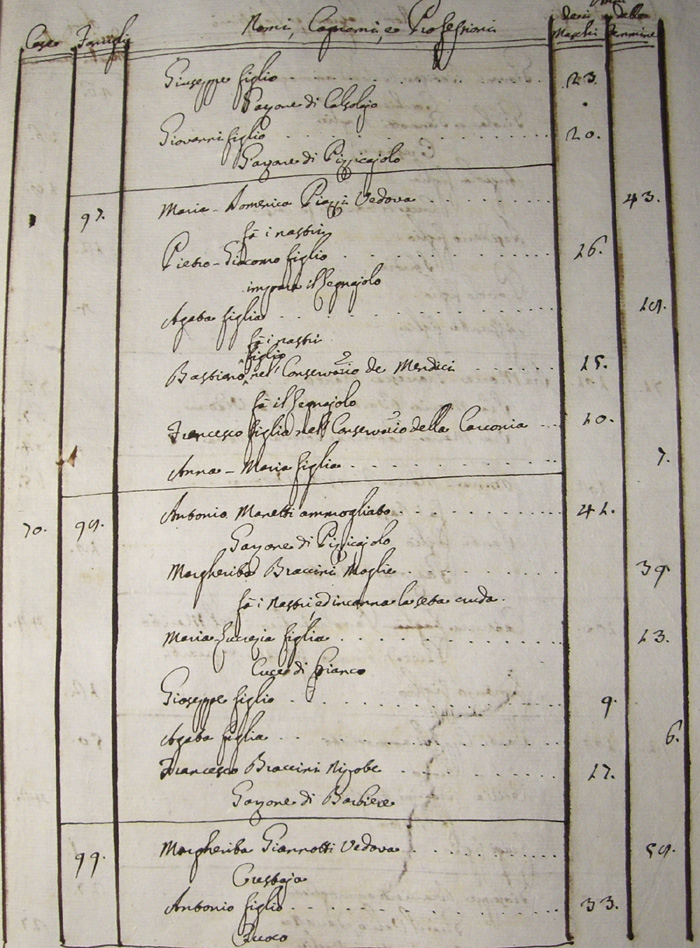 Case Famigli Nomi, Cognomi, e Professioni Anni dei Maschi delle Femmine
Giuseppe figlio 23.
Garzone di Calzolajo
Giovanni figlio 20.
Garzone di Pizzicajolo
97. Maria-Domenica Piazzi Vedova 43.
fà i nastri
Pietro-Giacomo figlio 16.
impara il Legnajolo
Agata figlia 19.
fà i nastri
figlio
Bastiano nel Conserv.rio de Mendici 15.
fà il Legnajolo
Francesco figlio nell Conserv.rio della Carconia 10.
Anna-Maria figlia 7.
70. 98. Antonio Manetti ammogliato 42.
Garzone di Pizzicajolo
Margherita Braccini Moglie 39
fà i Nastri ed incanna la seta cruda.
Maria Lucrezia figlia 13.
Cuce di Bianco
Gioseppe figlio 9.
Agata figlia 6.
Francesco Braccini Nipote 17.
Garzone di Barbiere
99. Margherita Giannotti Vedova 59.
Crestaja
Antonio figlio 33.
Cuoco